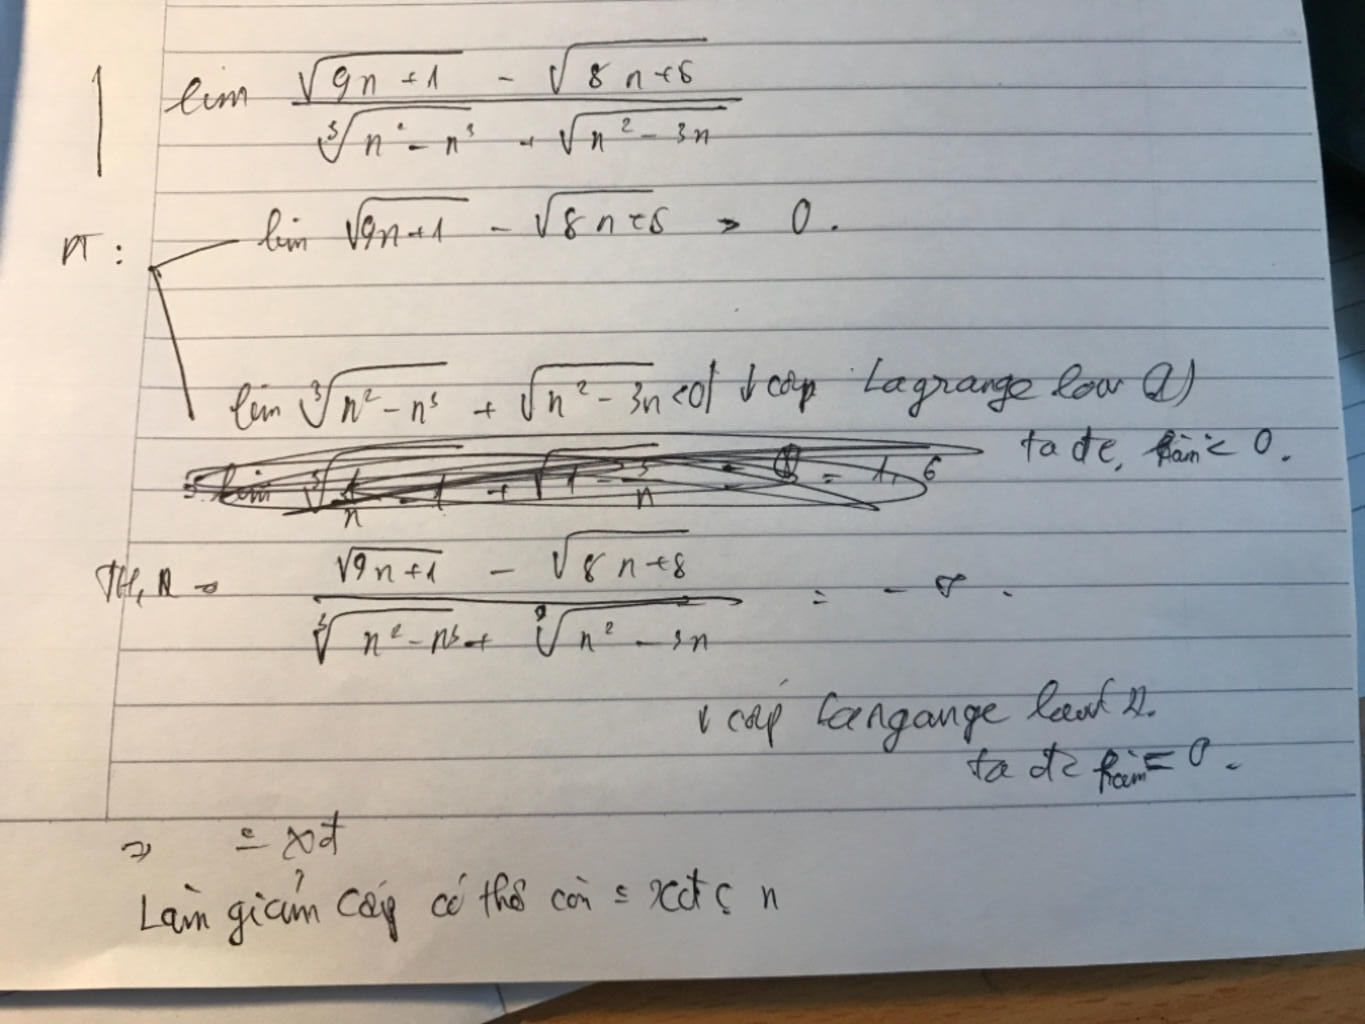 1 lim (√(9n+1) - √(8n+6)) / (∛(n² - n³) + √(n² - 3n))
DT: lim √(9n+1) - √(8n+6) > 0.
lim ∛(n² - n³) + √(n² - 3n) <0 | ↓ cấp Lagrange
ta đc, hàm < 0.
(√(9n+1) - √(8n+8)) / (∛(n² - n³) + √(n² - 3n)) = - ∞.
↓ cấp Langange
ta đc hàm = 0.
=> = xđ
Làm giảm cấp có thể còn = xđ ς n